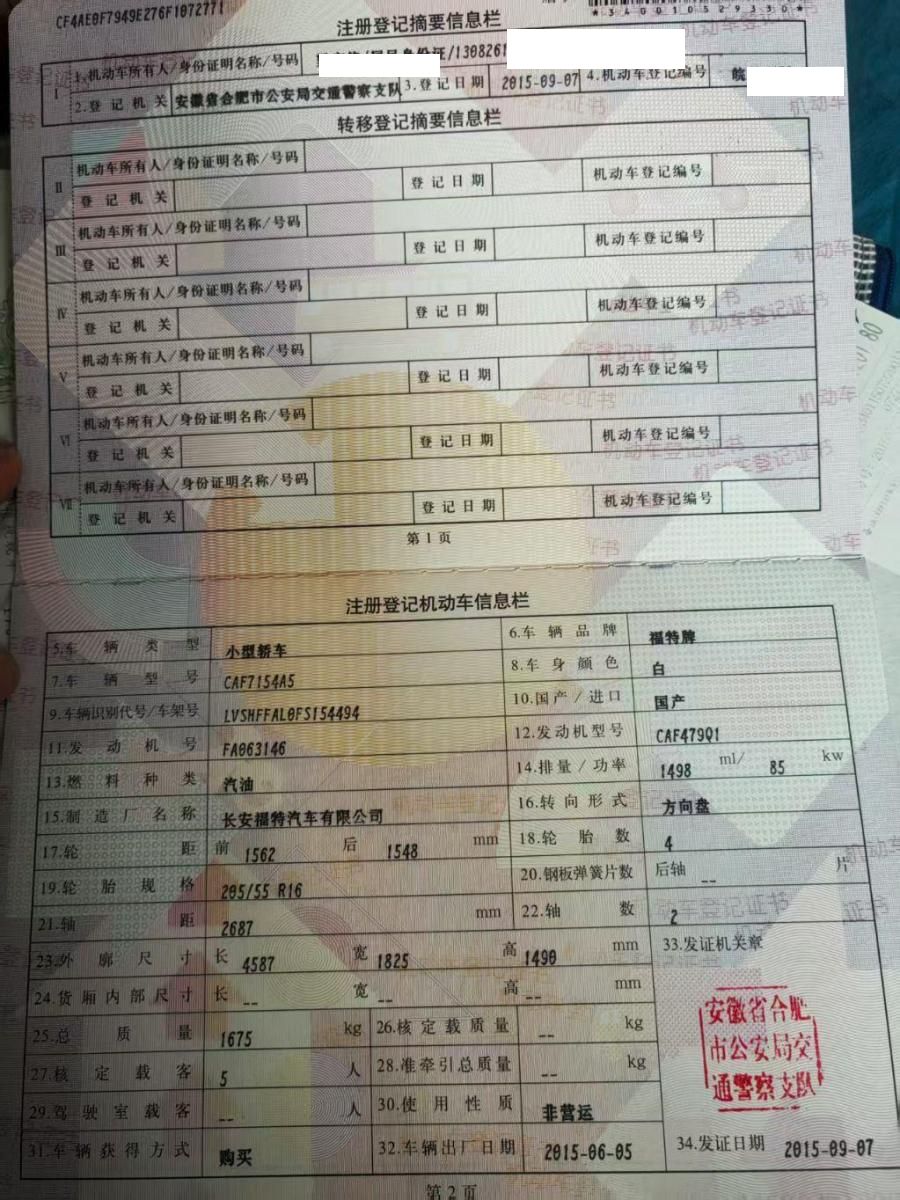 CF4AE0F7949E276F1072771
*340010529330*
注册登记摘要信息栏
I 1.机动车所有人/身份证明名称/号码 居民身份证/130826
2.登记机关 安徽省合肥市公安局交通警察支队 3.登记日期 2015-09-07 4.机动车登记编号 皖
转移登记摘要信息栏
II 机动车所有人/身份证明名称/号码
登记机关 登记日期 机动车登记编号
III 机动车所有人/身份证明名称/号码
登记机关 登记日期 机动车登记编号
IV 机动车所有人/身份证明名称/号码
登记机关 登记日期 机动车登记编号
V 机动车所有人/身份证明名称/号码
登记机关 登记日期 机动车登记编号
VI 机动车所有人/身份证明名称/号码
登记机关 登记日期 机动车登记编号
VII 机动车所有人/身份证明名称/号码
登记机关 登记日期 机动车登记编号
第1页
注册登记机动车信息栏
5.车辆类型 小型轿车 6.车辆品牌 福特牌
7.车辆型号 CAF7154A5 8.车身颜色 白
9.车辆识别代号/车架号 LVSHFFAL0FS154494 10.国产/进口 国产
11.发动机号 FA063146 12.发动机型号 CAF479Q1
13.燃料种类 汽油 14.排量/功率 1498 ml/ 85 kw
15.制造厂名称 长安福特汽车有限公司 16.转向形式 方向盘
17.轮距 前 1562 后 1548 mm 18.轮胎数 4
19.轮胎规格 205/55 R16 20.钢板弹簧片数 后轴 -- 片
21.轴距 2687 mm 22.轴数 2
23.外廓尺寸 长 4587 宽 1825 高 1490 mm 33.发证机关章
24.货厢内部尺寸 长 -- 宽 -- 高 -- mm
25.总质量 1675 kg 26.核定载质量 -- kg
27.核定载客 5 人 28.准牵引总质量 -- kg
29.驾驶室载客 -- 人 30.使用性质 非营运
安徽省合肥
市公安局交
通警察支队
31.车辆获得方式 购买 32.车辆出厂日期 2015-06-05 34.发证日期 2015-09-07
第2页